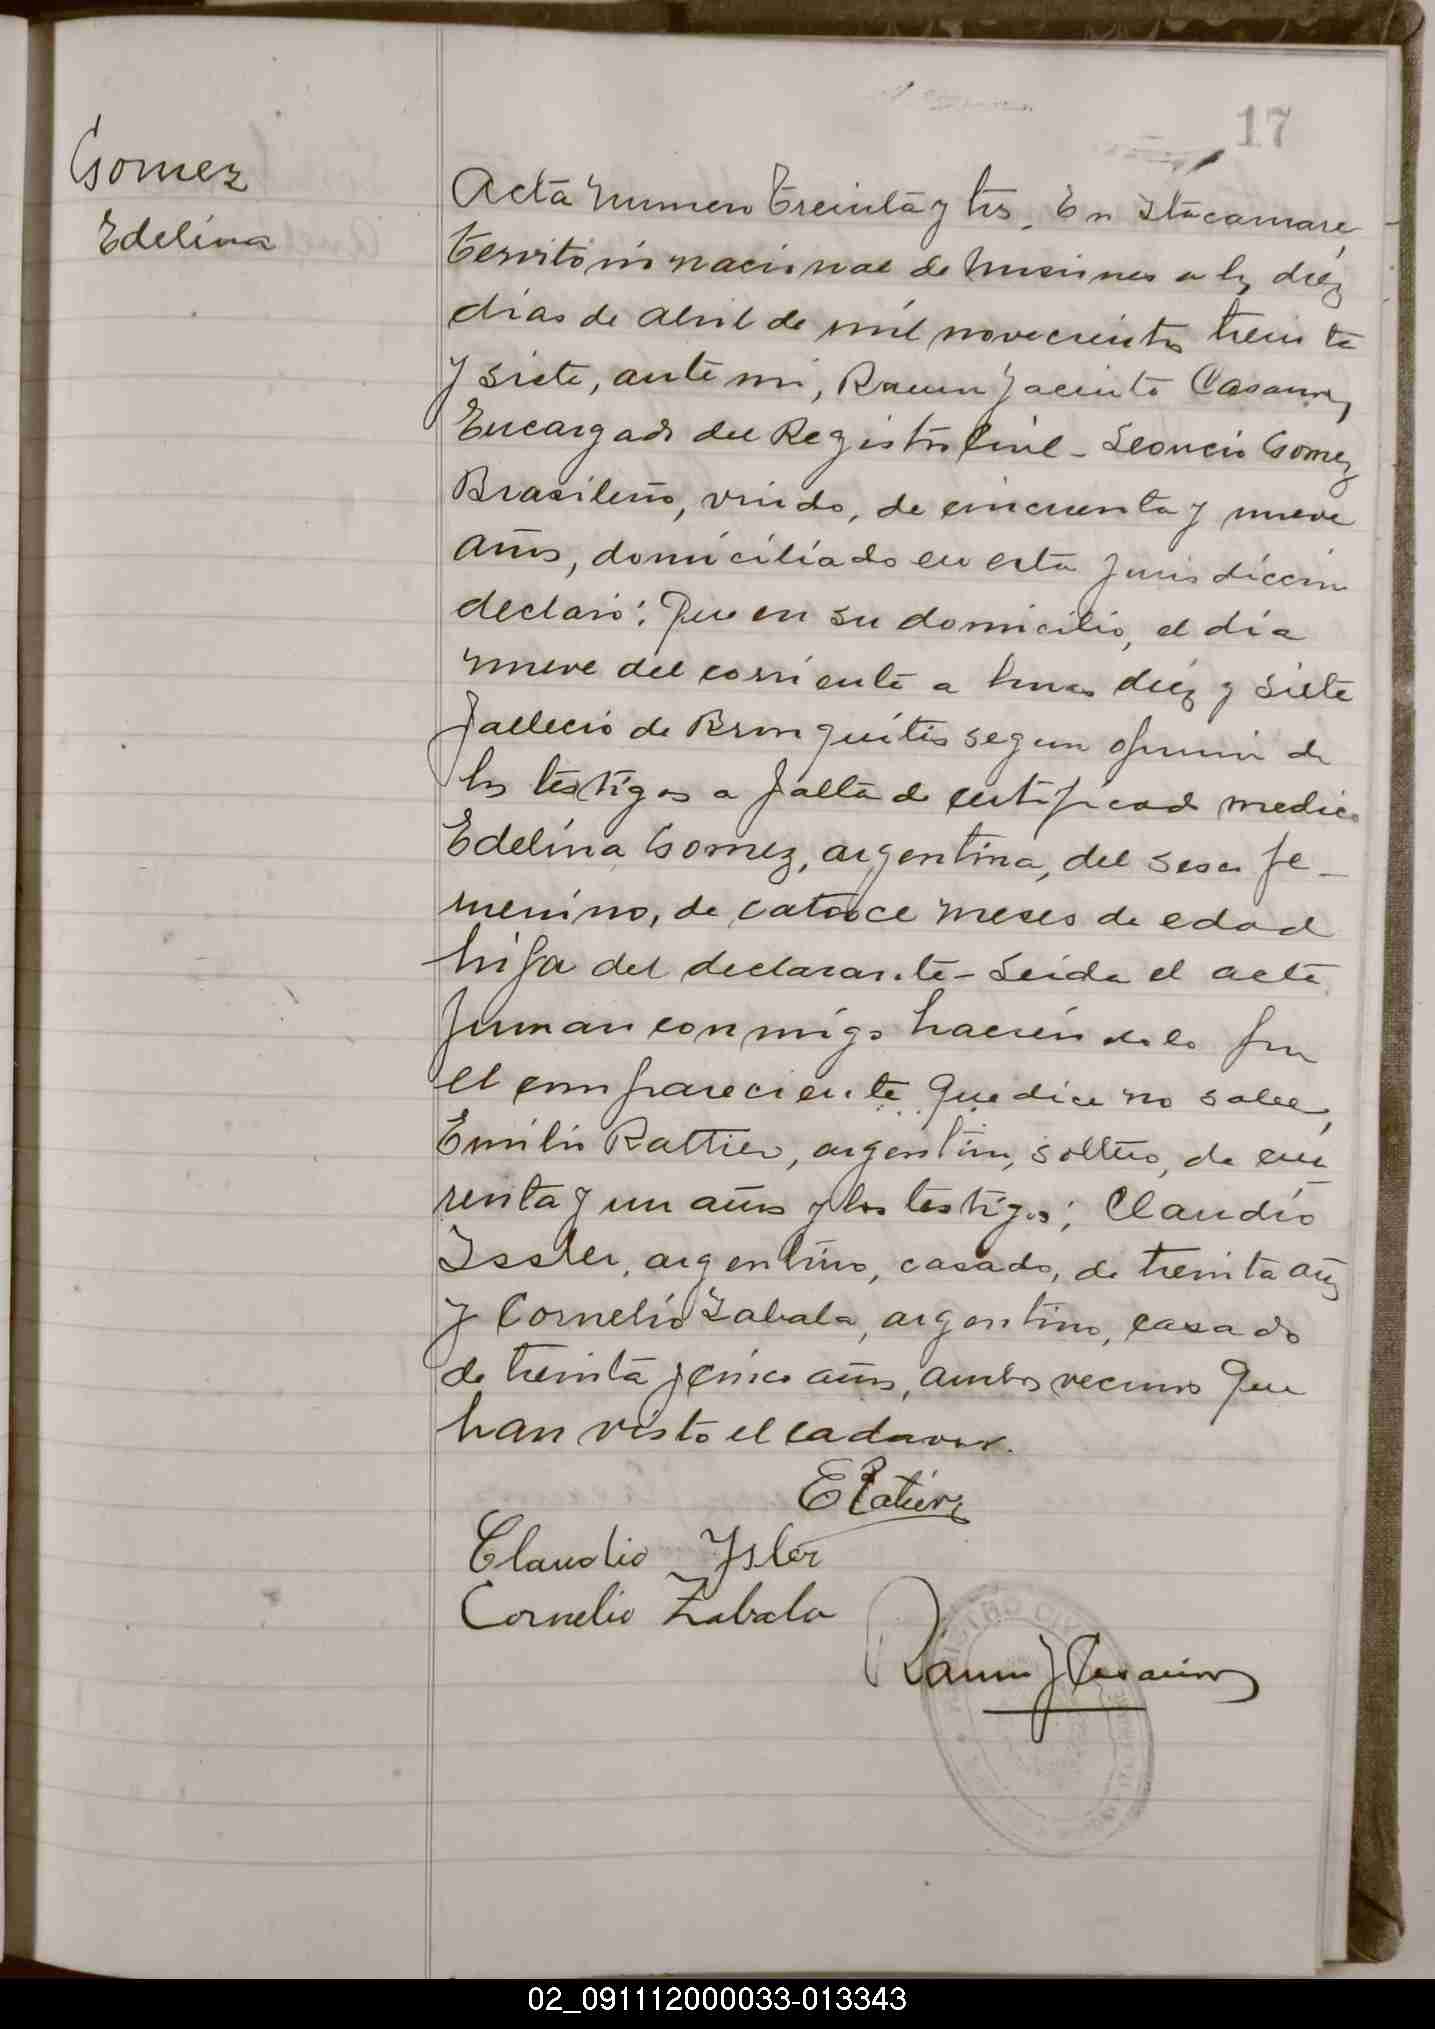 17
Gomez
Edelina
Acta numero treinta y tres. En Itacaruare,
territorio nacional de Misiones a los diéz
dias de abril de mil novecientos treinta
y siete, ante mi, Ramon Jacinto Casano,
Encargado del Registro Civil - Leoncio Gomez
Brasileño, viudo, de cincuenta y nueve
años, domiciliado en esta jurisdiccion
declaró: Que en su domicilio, el dia
nueve del corriente a horas diéz y siete
falleció de Bronquitis segun opinion de
los testigos a falta de certificado medico
Edelina Gomez, argentina, del sexo fe-
menino, de catorce meses de edad
hija del declarante - Leida el acta
firman conmigo haciendolo por
el compareciente que dice no saber,
Emilio Rattier, argentino, soltero, de cua
renta y un años y los testigos; Claudio
Issler, argentino, casado, de treinta años
y Cornelio Zabala, argentino, casado
de treinta y cinco años, ambos vecinos que
han visto el cadaver.
E Ratier
Claudio Isler
Cornelio Zabala
Ramon J
REGISTRO CIVIL
02_091112000033-013343